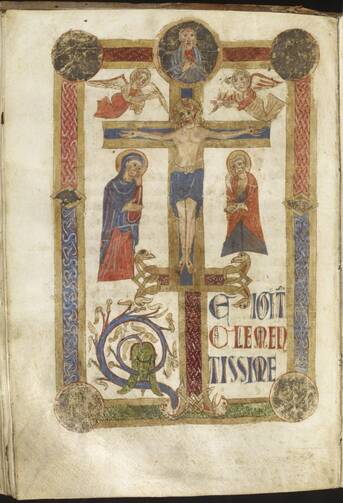 TE IGIT̄
CLEMEN
TISSIME